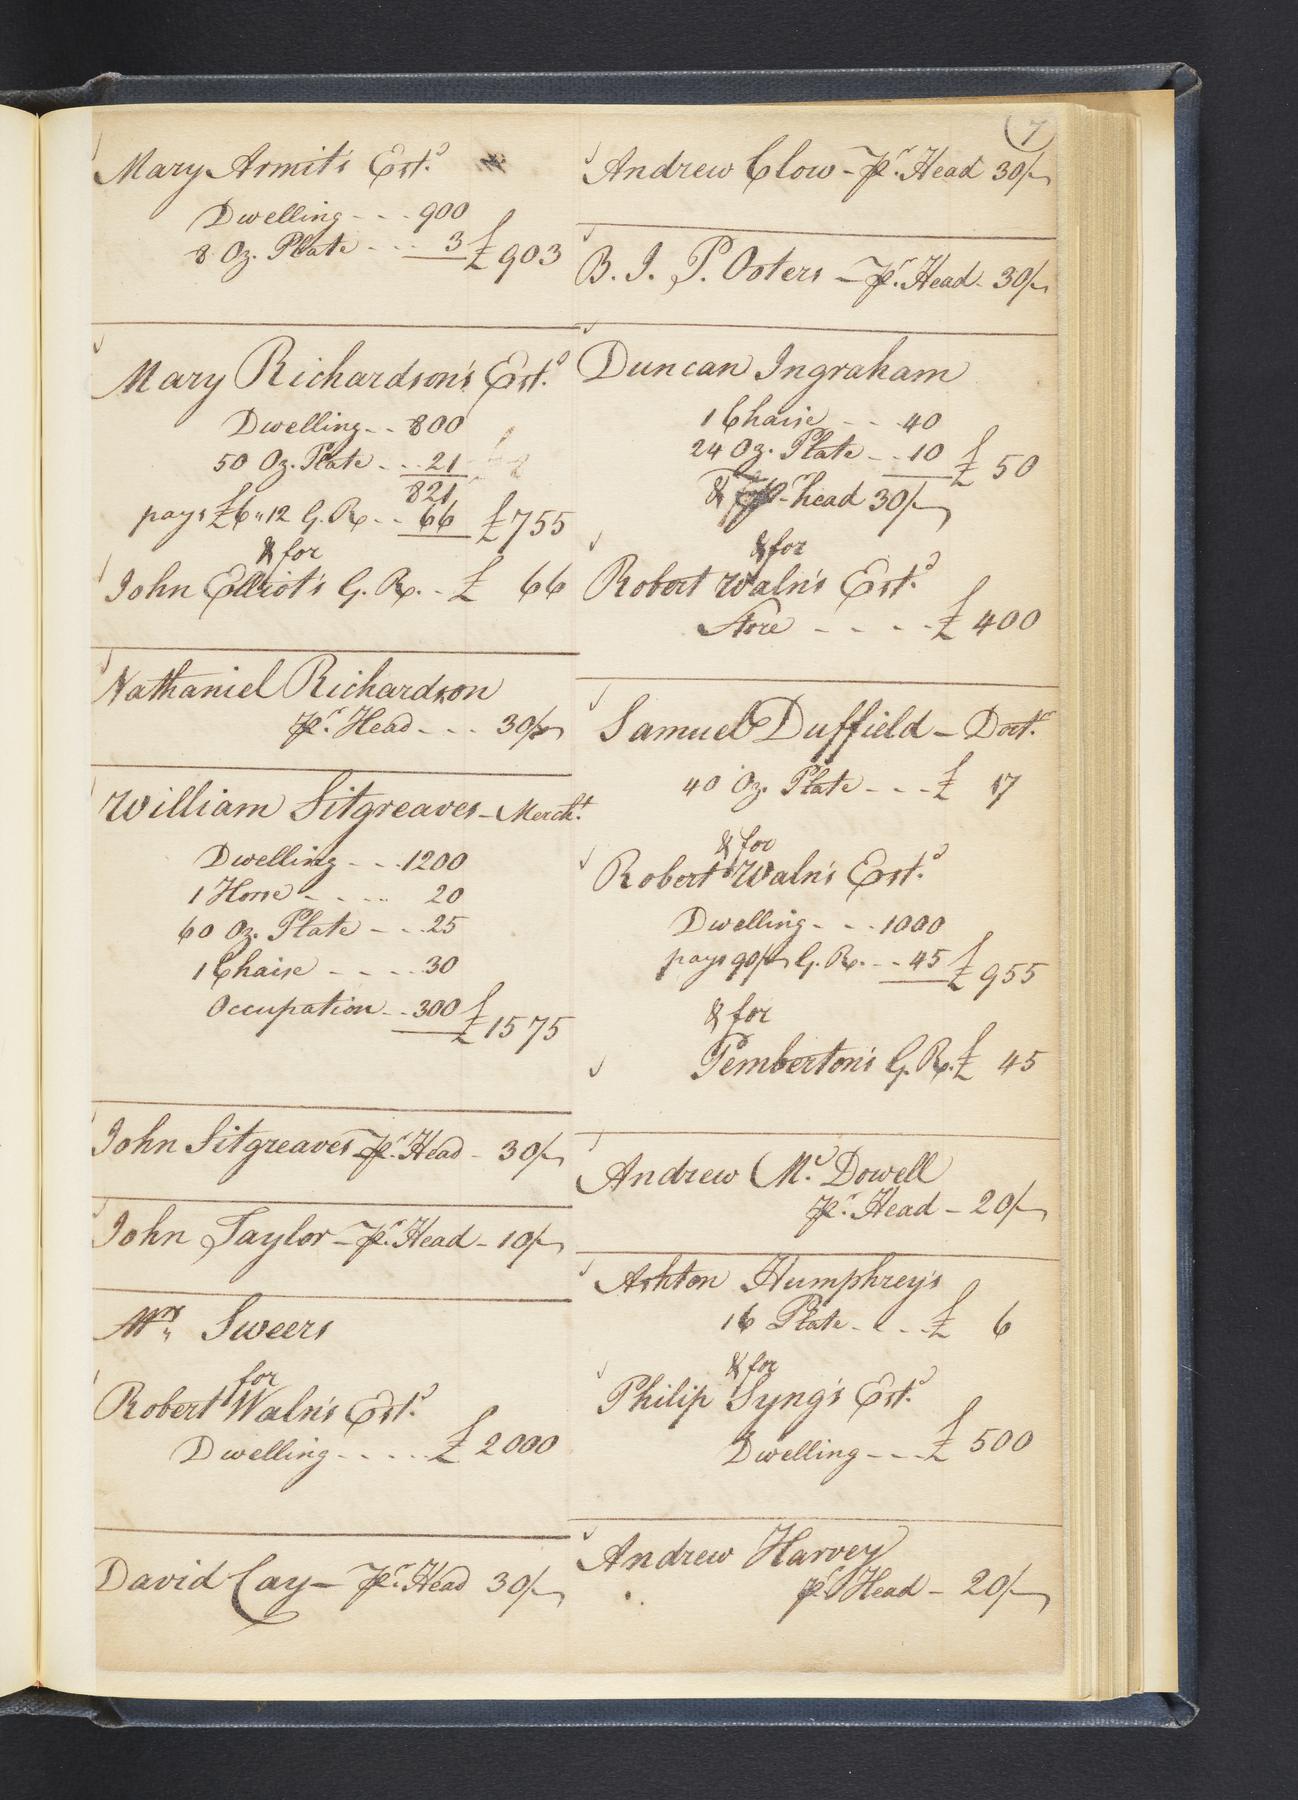 7
Mary Armit's Est.e
Dwelling - - - 900
8 Oz. Plate - - - 3 £ 903
Mary Richardson's Est.e
Dwelling - - 800
50 Oz. Plate - - 21
821
pays £6„12 G. R. - - 66 £ 755
& for
John Elliot's G. R. - £ 66
Nathaniel Richardson
pr. Head - - - 30/
William Sitgreaves - Mercht.
Dwelling - - - 1200
1 Horse - - - - 20
60 Oz. Plate - - - 25
1 Chaise - - - - 30
Occupation - - 300 £ 1575
John Sitgreaves pr. Head - 30/
John Taylor - pr. Head - 10/
Mrs„ Sweers
for
Robert Waln's Est.e
Dwelling - - - - £ 2000
David Cay - pr. Head 30/
Andrew Clow - pr. Head 30/
B. I. P. Osters - pr. Head - 30/
Duncan Ingraham
1 Chaise - - - 40
24 Oz. Plate - - 10 £ 50
& pr head 30/
& for
Robert Waln's Est.e
Store - - - - £ 400
Samuel Duffield - Doctr.
40 Oz. Plate - - - £ 17
& for
Robert Waln's Est.e
Dwelling - - - 1000
pays 90/ G. R. - - 45 £ 955
& for
Pemberton's G. R. £ 45
Andrew Mc. Dowell
pr. Head - 20/
Ashton Humphrey's
16 Plate - - - £ 6
& for
Philip Syng's Est.e
Dwelling - - - £ 500
Andrew Harvey
pr. Head - 20/